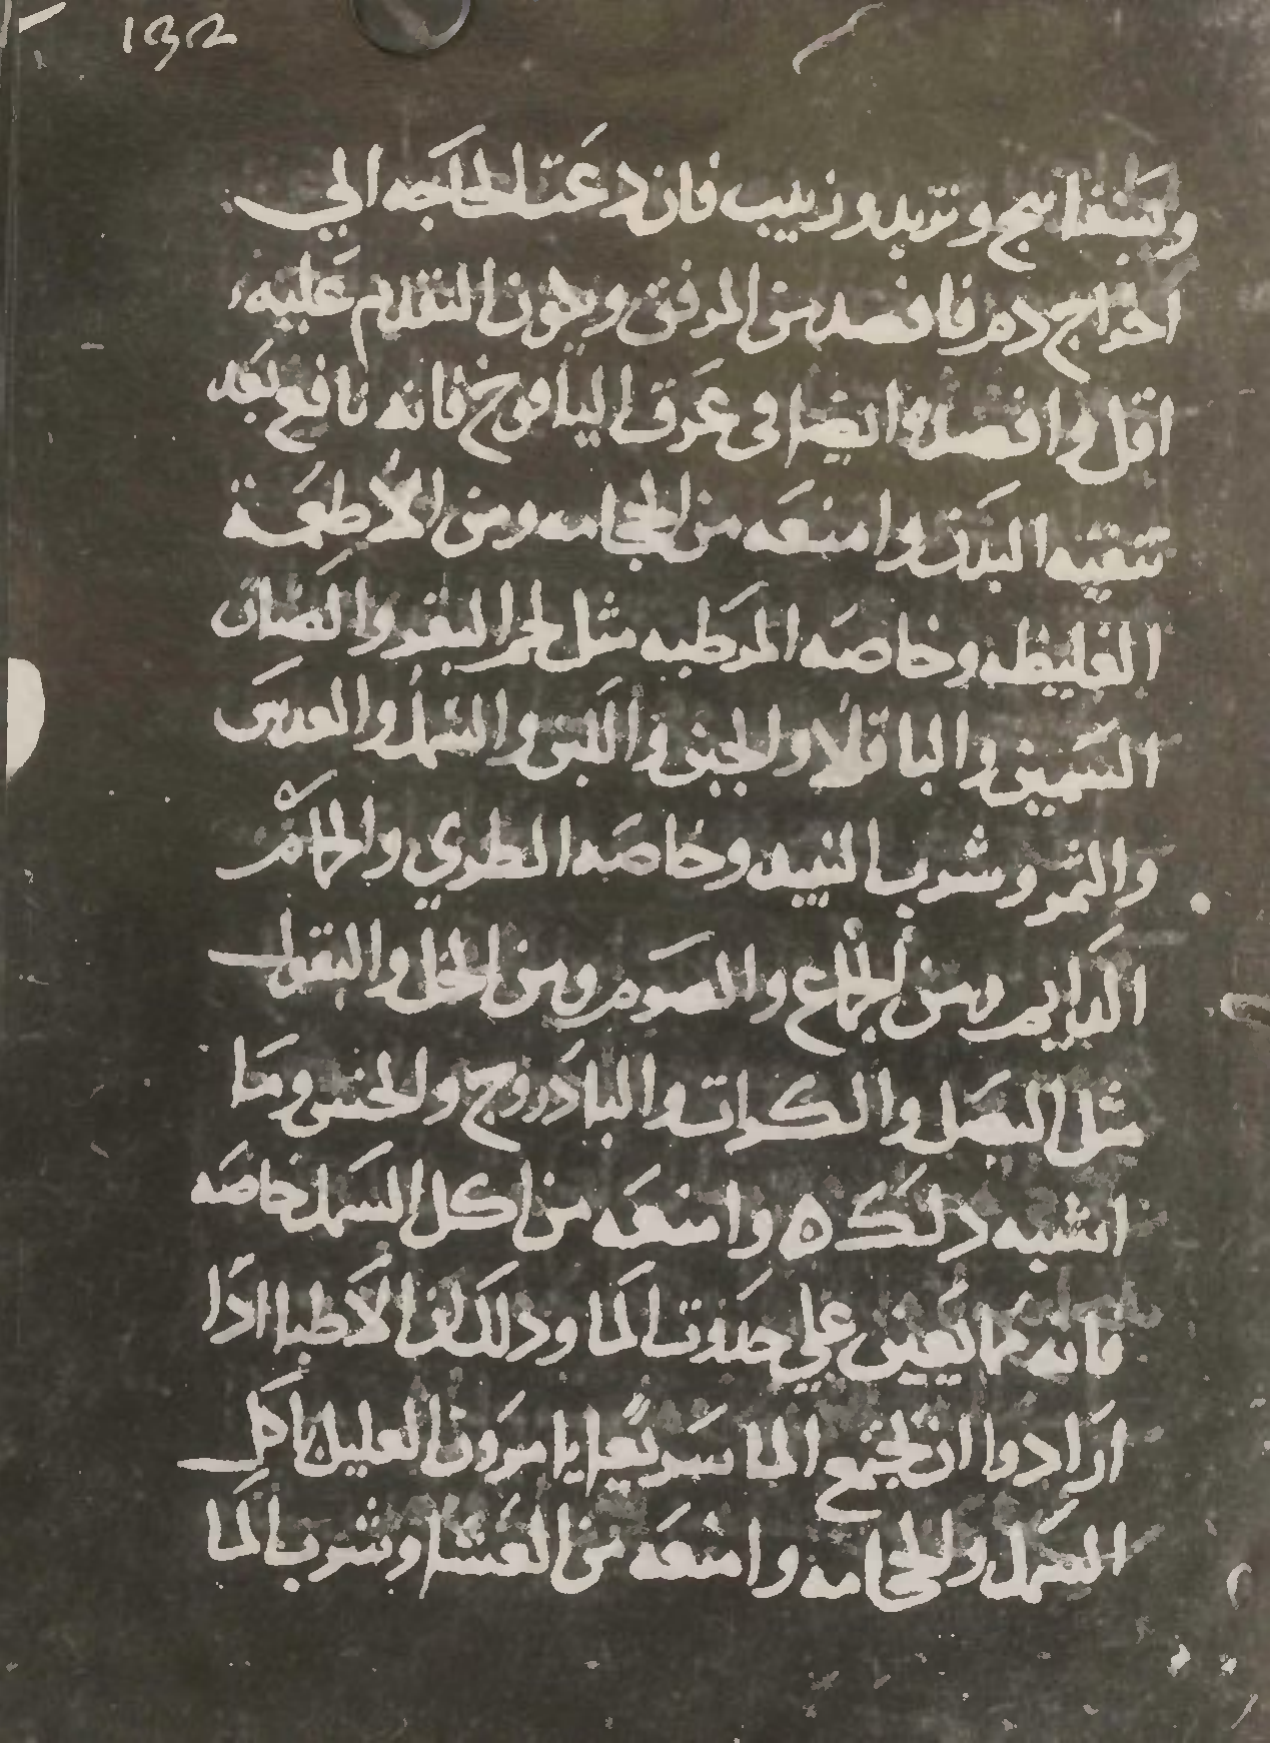 132
وبسفايج وتربد وزبيب فان دعت الحاجه الي
اخراج دم فافصد من المرفق ويكون التقدم عليه
اقل وافصد ايضا في عرق اليافوخ فانه نافع بعد
تنقيه البدن وامنعه من الحجامه ومن الأطعمة
الغليظه وخاصه المرطبه مثل لحم البقر والضان
السمين والباقلا والجبن واللبن والسمك والعدس
والتمر وشرب النبيد وخاصه الطري والحمام
الدايم ومن الجماع والصوم ومن الخل والبقول
مثل البصل والكرات والبادروج والخس وما
اشبه دلك ه وامنعه من اكل السمك خاصه
فانه مما يعين علي حدوت الما ودلك ان الاطبا ادا
ارادوا ان يجتمع الما سريعا يامرون العليل باكل
السمك والحجامه وامنعه من العشا وشرب الما